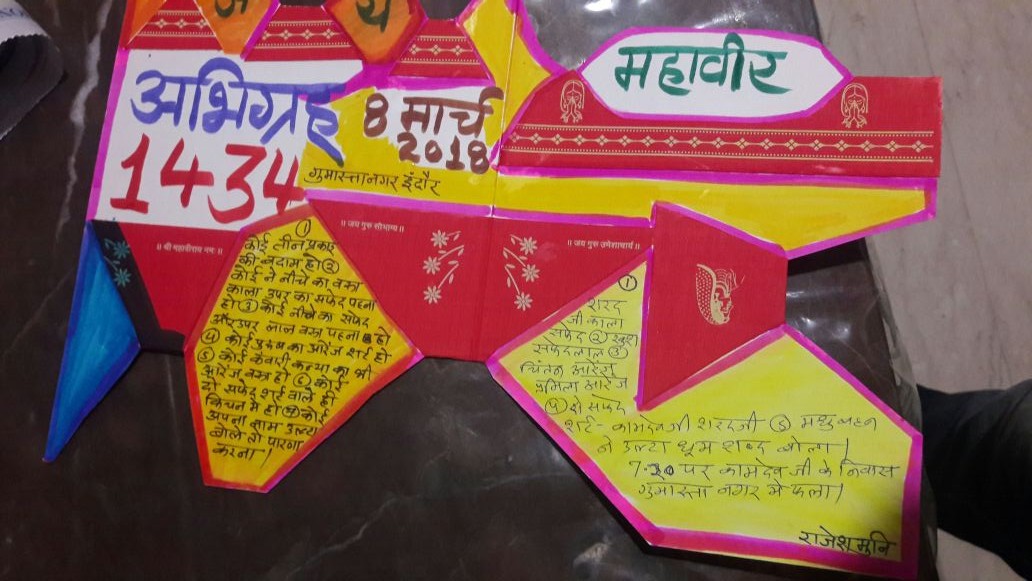 अ
य
महावीर
अभिग्रह
1434
8 मार्च
2018
गुमास्तानगर इंदौर
॥ श्री महावीराय नमः ॥
॥ जय गुरु सोभाग्य ॥
॥ जय गुरु उमेशाचार्य ॥
①
कोई तीन प्रकार
की बदाम हो ②
कोई ने नीचे का वस्त्र
काला उपर का सफेद पहना
हो ③ कोई नीचे का सफेद
और उपर लाल वस्त्र पहना हो
④ कोई पुरुष का ओरेंज शर्ट हो
⑤ कोई कंवारी कन्या का भी
ओरेंज वस्त्र हो ⑥ कोई
दो सफेद शर्ट वाले ही
किचन मे हो ⑦ कोई
अपना नाम उल्टा
बोले तो पारणा
करना।
①
शरद
जी काला
सफेद ②
सफेद लाल ③
चिंतन ओरेंज
प्रमिला ओरेंज
④ दो सफेद
शर्ट - कामदेवजी शरदजी ⑤ मधु बहन
ने उल्टा धूम शब्द बोला।
7.20 पर कामदेव जी के निवास
गुमास्ता नगर मे फला।
राजेश मुनि